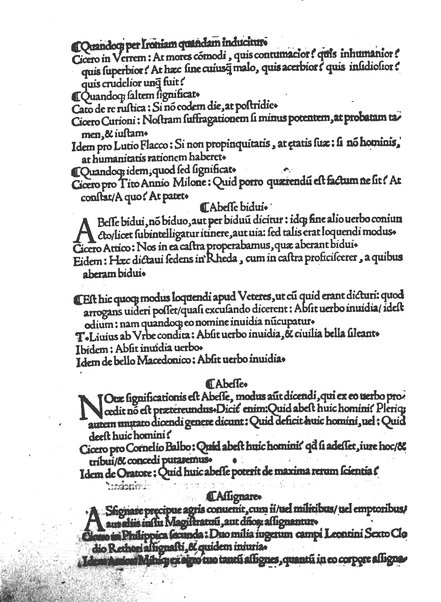 ¶Quandoq; per Ironiam quandam inducitur•
Cicero in Verrem : At mores cõmodi , quis contumacior? quis inhumanior?
quis superbior? At hæc sine cuiusq̃ malo, quis acerbior? quis insidiosior?
quis crudelior unq̃ fuit?
¶Quandoq; saltem significat•
Cato de re rustica : Si nõ codem die, at postridie•
Cicero Curioni : Nostram suffragationem si minus potentem, at probatam ta-
men, & iustam•
Idem pro Lutio Flacco : Si non propinquitatis , at ętatis suæ : si nõ hominis,
at humanitatis rationem haberet•
¶Quandoq; idem, quod sed significat•
Cicero pro Tito Annio Milone : Quid porro quærendũ est factum ne sit? At
constat/ A quo? At patet•
¶Abesse bidui•
ABesse bidui, nõ biduo, aut per biduũ dicitur : idq; sine alio uerbo coniun
cto/ licet subintelligatur itinere, aut uia: sed talis erat loquendi modus•
Cicero Attico : Nos in ea castra properabamus, quæ aberant bidui•
Eidem : Hæc dictaui sedens in Rheda , cum in castra proficiscerer , a quibus
aberam bidui•
¶Est hic quoq; modus loquendi apud Veteres, ut cũ quid erant dicturi: quod
arrogans uideri posset/ quasi excusando dicerent : Absit uerbo inuidia/ idest
odium : nam quandoq; eo nomine inuidia nũcupatur•
T•Liuius ab Vrbe condita : Absit uerbo inuidia, & ciuilia bella sileant•
Ibidem : Absit inuidia uerbo•
Idem de bello Macedonico : Absit uerbo inuidia•
¶Abesse•
NOtæ significationis est Abesse, modus aũt dicendi, qui ex eo uerbo pro-
cedit nõ est prætereundus• Dicit̃ enim: Quid abest huic homini? Pleriq;
autem mutato dicendi genere dicunt : Quid deficit huic homini, uel : Quid
deest huic homini?
Cicero pro Cornelio Balbo : Quid abest huic homini? qđ si adesset, iure hoc/ &
tribui/ & concedi putaremus•
Idem de Oratore : Quid huic abesse poterit de maxima rerum scientia?
¶Assignare•
ASsignare precipue agris conuenit, cum ii/ uel militibus/ uel emptoribus/
aut aliis iussu Magistratuũ, aut dñoꝝ assignantur•
Cicero in Philippica secunda : Duo milia iugerum campi Leontini Sexto Clo
dio Rethori assignasti, & quidem iniuria•
ex agro tuo tantũ assignes, quantũ in eo corpore assigna-